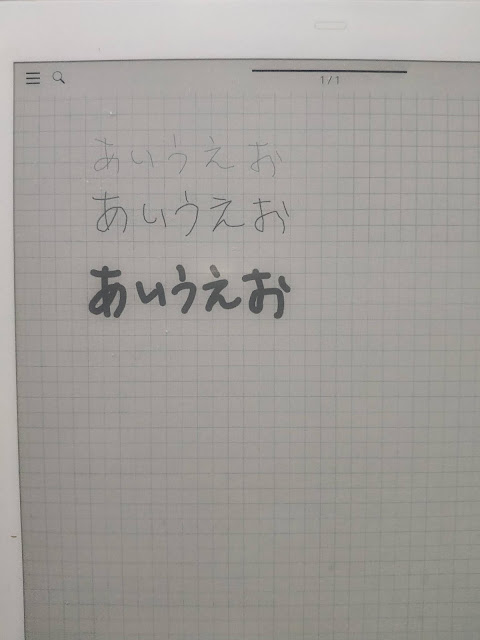 1/1
あいうえお
あいうえお
あいうえお